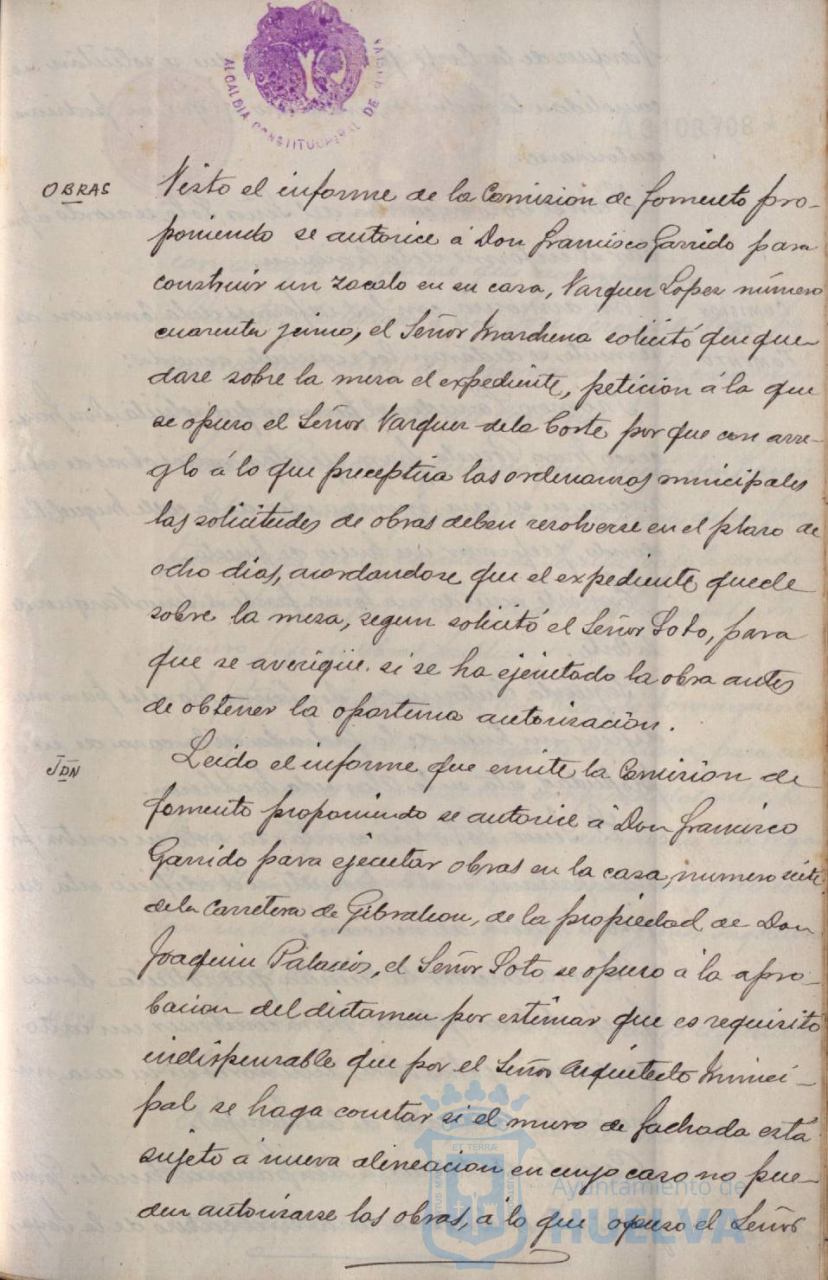 ALCALDIA CONSTITUCIONAL DE HUELVA
OBRAS
Visto el informe de la Comision de fomento pro-
poniendo se autorice á Don Francisco Garrido para
construir un zocalo en su casa, Vazquez Lopez número
cuarenta y cinco, el Señor Marchena solicitó que que-
dase sobre la mesa el expediente, peticion á la que
se opuso el Señor Vazquez de la Corte por que con arre-
glo á lo que preceptua las ordenanzas municipales
las solicitudes de obras deben resolverse en el plazo de
ocho dias, acordandose que el expediente quede
sobre la mesa, segun solicitó el Señor Soto, para
que se averigüe si se ha ejecutado la obra antes
de obtener la oportuna autorizacion.
IDN
Leido el informe que emite la Comision de
fomento proponiendo se autorice á Don Francisco
Garrido para ejecutar obras en la casa, numero siete
de la Carretera de Gibraleon, de la propiedad de Don
Joaquin Palacios, el Señor Soto se opuso á la apro-
bacion del dictamen por estimar que es requisito
indispensable que por el Señor Arquitecto Munici-
pal se haga constar si el muro de fachada está
sujeto á nueva alineacion en cuyo caso no pue-
den autorizarse las obras, á lo que opuso el Señor
Ayuntamiento de
HUELVA